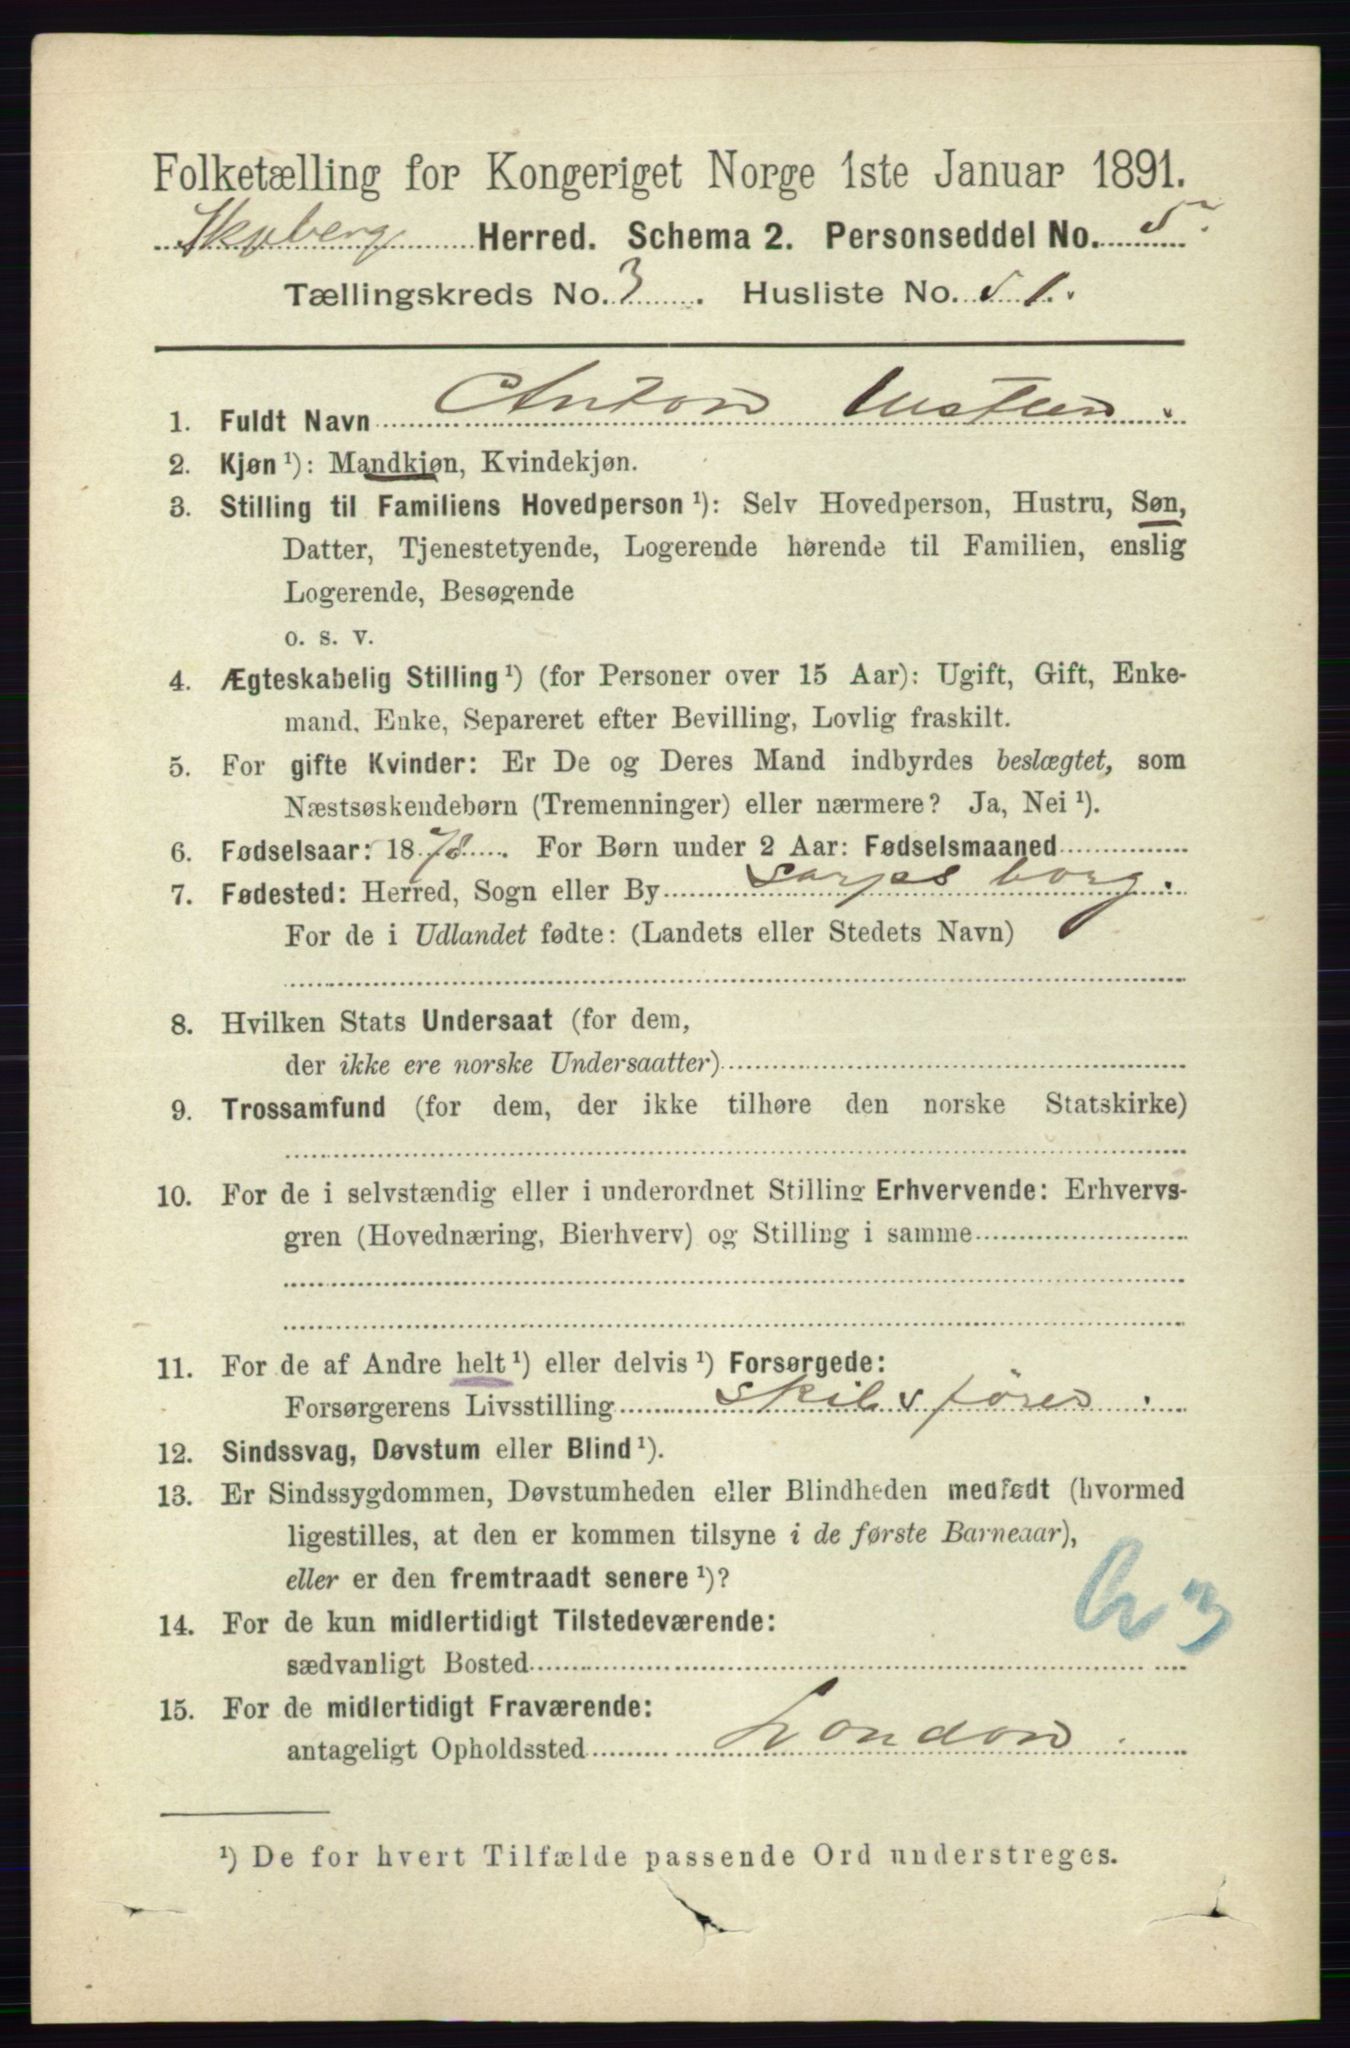 Folketælling for Kongeriget Norge 1ste Januar 1891.
Skjeberg Herred. Schema 2. Personseddel No. 5.
Tællingskreds No. 3. Husliste No. 51.
1. Fuldt Navn Anton
2. Kjøn ¹): Mandkjøn, Kvindekjøn.
3. Stilling til Familiens Hovedperson ¹): Selv Hovedperson, Hustru, Søn,
Datter, Tjenestetyende, Logerende hørende til Familien, enslig
Logerende, Besøgende
o. s. v.
4. Ægteskabelig Stilling ¹) (for Personer over 15 Aar): Ugift, Gift, Enke-
mand, Enke, Separeret efter Bevilling, Lovlig fraskilt.
5. For gifte Kvinder: Er De og Deres Mand indbyrdes beslægtet, som
Næstsøskendebørn (Tremenninger) eller nærmere? Ja, Nei ¹).
6. Fødselsaar: 1878. For Børn under 2 Aar: Fødselsmaaned
7. Fødested: Herred, Sogn eller By Sarpsborg.
For de i Udlandet fødte: (Landets eller Stedets Navn)
8. Hvilken Stats Undersaat (for dem,
der ikke ere norske Undersaatter)
9. Trossamfund (for dem, der ikke tilhøre den norske Statskirke)
10. For de i selvstændig eller i underordnet Stilling Erhvervende: Erhvervs-
gren (Hovednæring, Bierhverv) og Stilling i samme
11. For de af Andre helt ¹) eller delvis ¹) Forsørgede:
Forsørgerens Livsstilling Skibsfører.
12. Sindssvag, Døvstum eller Blind ¹).
13. Er Sindssygdommen, Døvstumheden eller Blindheden medfødt (hvormed
ligestilles, at den er kommen tilsyne i de første Barneaar),
eller er den fremtraadt senere ¹)?
14. For de kun midlertidigt Tilstedeværende:
sædvanligt Bosted
15. For de midlertidigt Fraværende:
antageligt Opholdssted London.
¹) De for hvert Tilfælde passende Ord understreges.